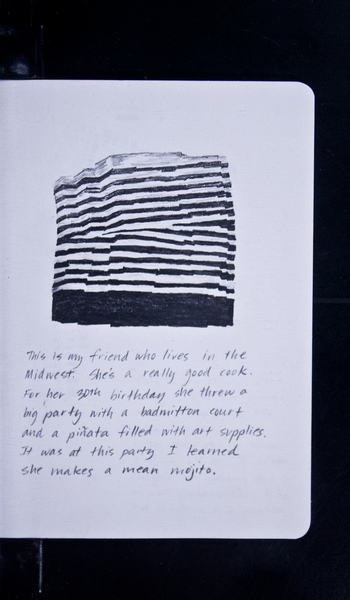 This is my friend who lives in the
Midwest. She's a really good cook.
For her 30th birthday she threw a
big party with a badmitton court
and a piñata filled with art supplies.
It was at this party I learned
she makes a mean mojito.